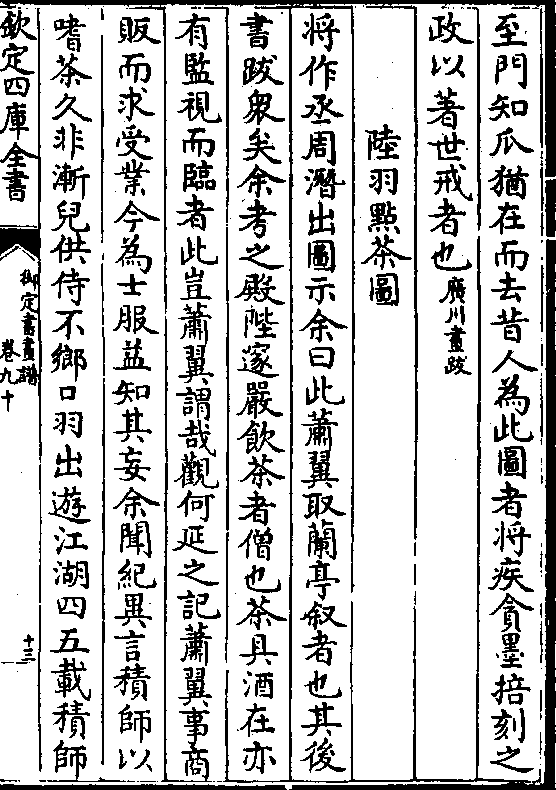 至門知瓜猶在而去昔人為此圖者將疾貪墨掊刻之
政以著世戒者也廣川畫跋
陸羽點茶圖
将作丞周潛出圖示余曰此蕭翼取蘭亭叙者也其後
書跋衆矣余考之殿陛邃嚴飲茶者僧也茶具酒在亦
有監視而臨者此豈蕭翼謂哉觀何延之記蕭翼事商
販而求受業今為士服益知其妄余聞紀異言積師以
嗜茶久非漸兒供侍不鄉口羽出遊江湖四五載積師
欽定四庫全書
御定書畫譜
卷九十
十三